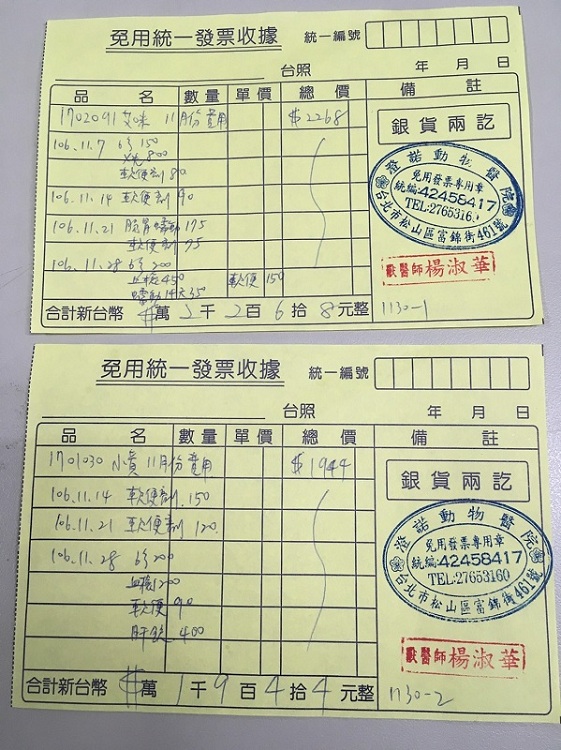 免用統一發票收據 統一編號
台照 年 月 日
品 名 數量 單價 總價 備 註
1702091 艾咪 11月份費用 $2268
106.11.7 診150
銀貨兩訖
軟便劑 80
106.11.14 軟便劑 90
106.11.21 175
軟便劑 75
106.11.28 診200
血檢450 軟便 150
合計新台幣 萬 2千 2百 6拾 8元整
澄諾動物醫院
免用發票專用章
統編:42458417
TEL:2765316
台北市松山區富錦街461號
獸醫師 楊淑華
1130-1
免用統一發票收據 統一編號
台照 年 月 日
品 名 數量 單價 總價 備 註
1701030 小貴 11月份費用 $1944
106.11.14 軟便劑 150
銀貨兩訖
106.11.21 軟便劑 120
106.11.28 診200
血檢1200
軟便 90
400
合計新台幣 萬 1千 9百 4拾 4元整
澄諾動物醫院
免用發票專用章
統編:42458417
TEL:27653160
台北市松山區富錦街461號
獸醫師 楊淑華
1130-2